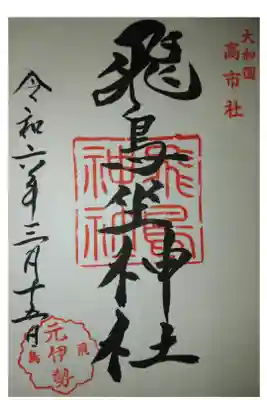 大和國
高市社
飛鳥坐神社
飛鳥
神社
令和六年三月十五日
元伊勢
飛鳥